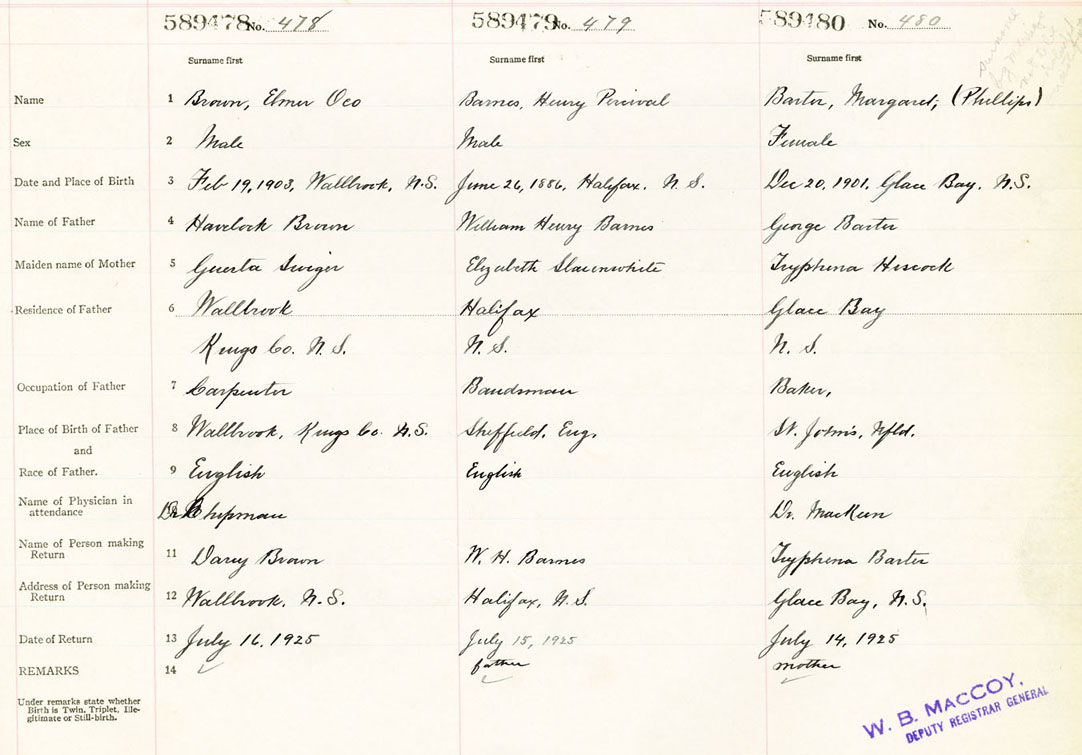 589478 No. 478 589479 No. 479 589480 No. 480
Surname first Surname first Surname first
Name 1 Brown, Elmer Oco Barnes, Henry Percival Barter, Margaret, (Phillips)
Sex 2 Male Male Female
Date and Place of Birth 3 Feb 19, 1903, Wallbrook, N.S. June 26, 1886, Halifax. N. S. Dec 20, 1901, Glace Bay, N.S.
Name of Father 4 Havelock Brown William Henry Barnes George Barter
Maiden name of Mother 5 Elizabeth Slaunwhite Tryphena Hiscock
Residence of Father 6 Wallbrook Halifax Glace Bay
Kings Co. N. S. N. S. N. S.
Occupation of Father 7 Carpenter Bandsman Baker,
Place of Birth of Father 8 Wallbrook, Kings Co. N.S. Sheffield, Eng. St. John's, Nfld.
and
Race of Father. 9 English English English
Name of Physician in
attendance Dr Chipman Dr. MacKeen
Name of Person making
Return 11 Darcy Brown W. H. Barnes Tryphena Barter
Address of Person making
Return 12 Wallbrook, N.S. Halifax, N.S. Glace Bay, N.S.
Date of Return 13 July 16, 1925 July 15, 1925 July 14, 1925
REMARKS 14 father mother
Under remarks state whether
Birth is Twin, Triplet, Ille-
gitimate or Still-birth.
W. B. MACCOY,
DEPUTY REGISTRAR GENERAL